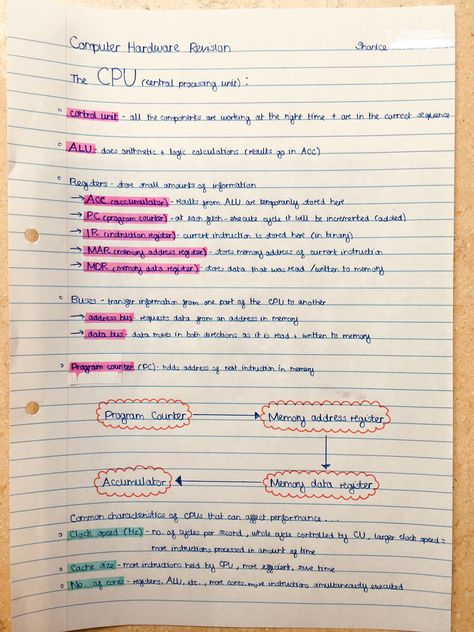 Computer Hardware Revision Shanice
The CPU (central processing unit) :
control unit - all the components are working at the right time + are in the correct sequence
ALU - does arithmetic + logic calculations (results go in ACC)
Registers - store small amounts of information
→ ACC (accumulator) - results from ALU are temporarily stored here
→ PC (program counter) - at each fetch-execute cycle it will be incremented (added)
→ IR (instruction register) - current instruction is stored here (in binary)
→ MAR (memory address register) - stores memory address of current instruction
→ MDR (memory data register) - stores data that was read / written to memory
Buses - transfer information from one part of the CPU to another
→ address bus - requests data from an address in memory
→ data bus - data moves in both directions as it is read + written to memory
Program counter (PC) - holds address of next instruction in memory
Program Counter → Memory address register
Accumulator ← Memory data register
Common characteristics of CPUs that can affect performance ...
Clock speed (Hz) - no. of cycles per second, whole cycle controlled by CU, larger clock speed =
more instructions processed in amount of time
Cache size - more instructions held by CPU, more efficient, save time
No. of cores - registers, ALU, etc., more cores, more instructions simultaneously executed